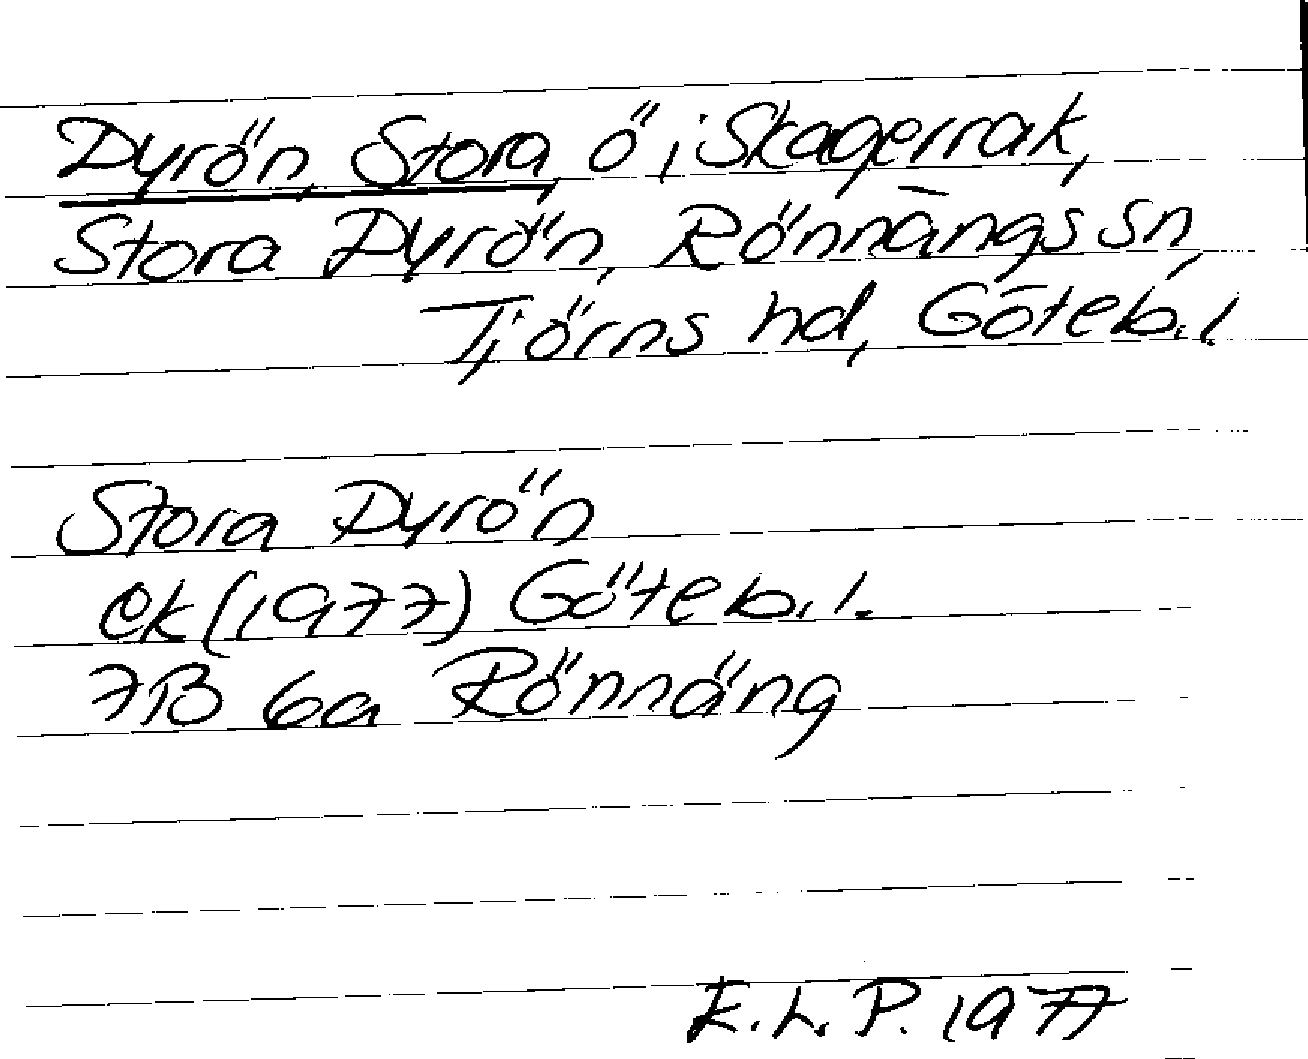 Dyrön, Stora, ö i Skagerrak,
Stora Dyrön, Rönnängs sn,
Tjörns hd, Göteb. l.
Stora Dyrön
ek (1977) Göteb. l.
7B 6a Rönnäng
E.L.P. 1977